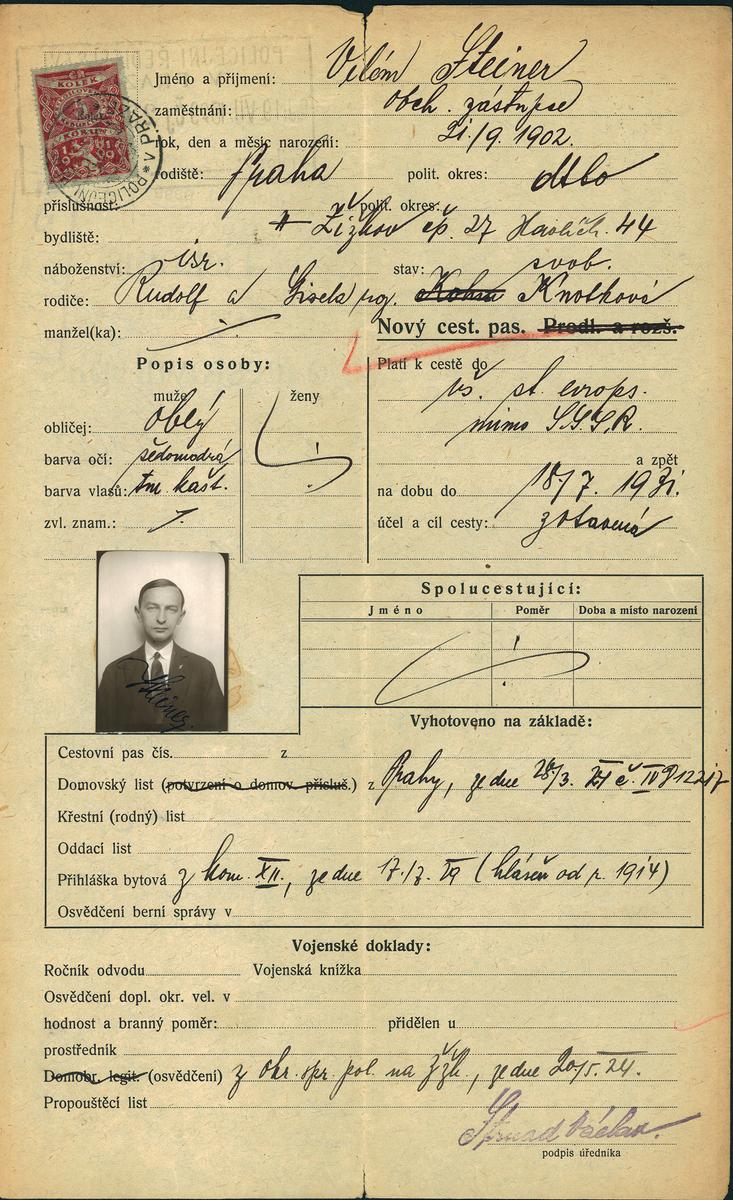 Vilém Steiner
Jméno a příjmení:
zaměstnání: obch. zástupce
rok, den a měsíc narození: 21./9. 1902.
rodiště: Praha polit. okres: dtto
příslušnost: polit. okres:
bydliště: Žižkov čp. 27 Havlíč. 44
náboženství: isr. stav: svob.
rodiče: Rudolf a Gisela roz. Kohn Knollková
manžel(ka):
Nový cest. pas. Prodl. a rozš.
Popis osoby:
muže ženy
obličej: oblý
barva očí: šedomodrá
barva vlasů: tm. kašt.
zvl. znam.:
Platí k cestě do
vš. st. evrops.
mimo S.S.S.R.
a zpět
na dobu do 18/7. 1931.
účel a cíl cesty: zotavená
Steiner
Spolucestující:
Jméno Poměr Doba a místo narození
Vyhotoveno na základě:
Cestovní pas čís. z
Domovský list (potvrzení o domov. přísluš.) z Prahy, ze dne 28/3. č. IV
Křestní (rodný) list
Oddací list
Přihláška bytová z kom. XII., ze dne 17./7. (hlášen od r. 1914)
Osvědčení berní správy v
Vojenské doklady:
Ročník odvodu Vojenská knížka
Osvědčení dopl. okr. vel. v
hodnost a branný poměr: přidělen u
prostředník
Domobr. legit. (osvědčení) z okr. spr. pol. na Žžk., ze dne 20/5. 24.
Propouštěcí list
Strnad Václav.
podpis úředníka